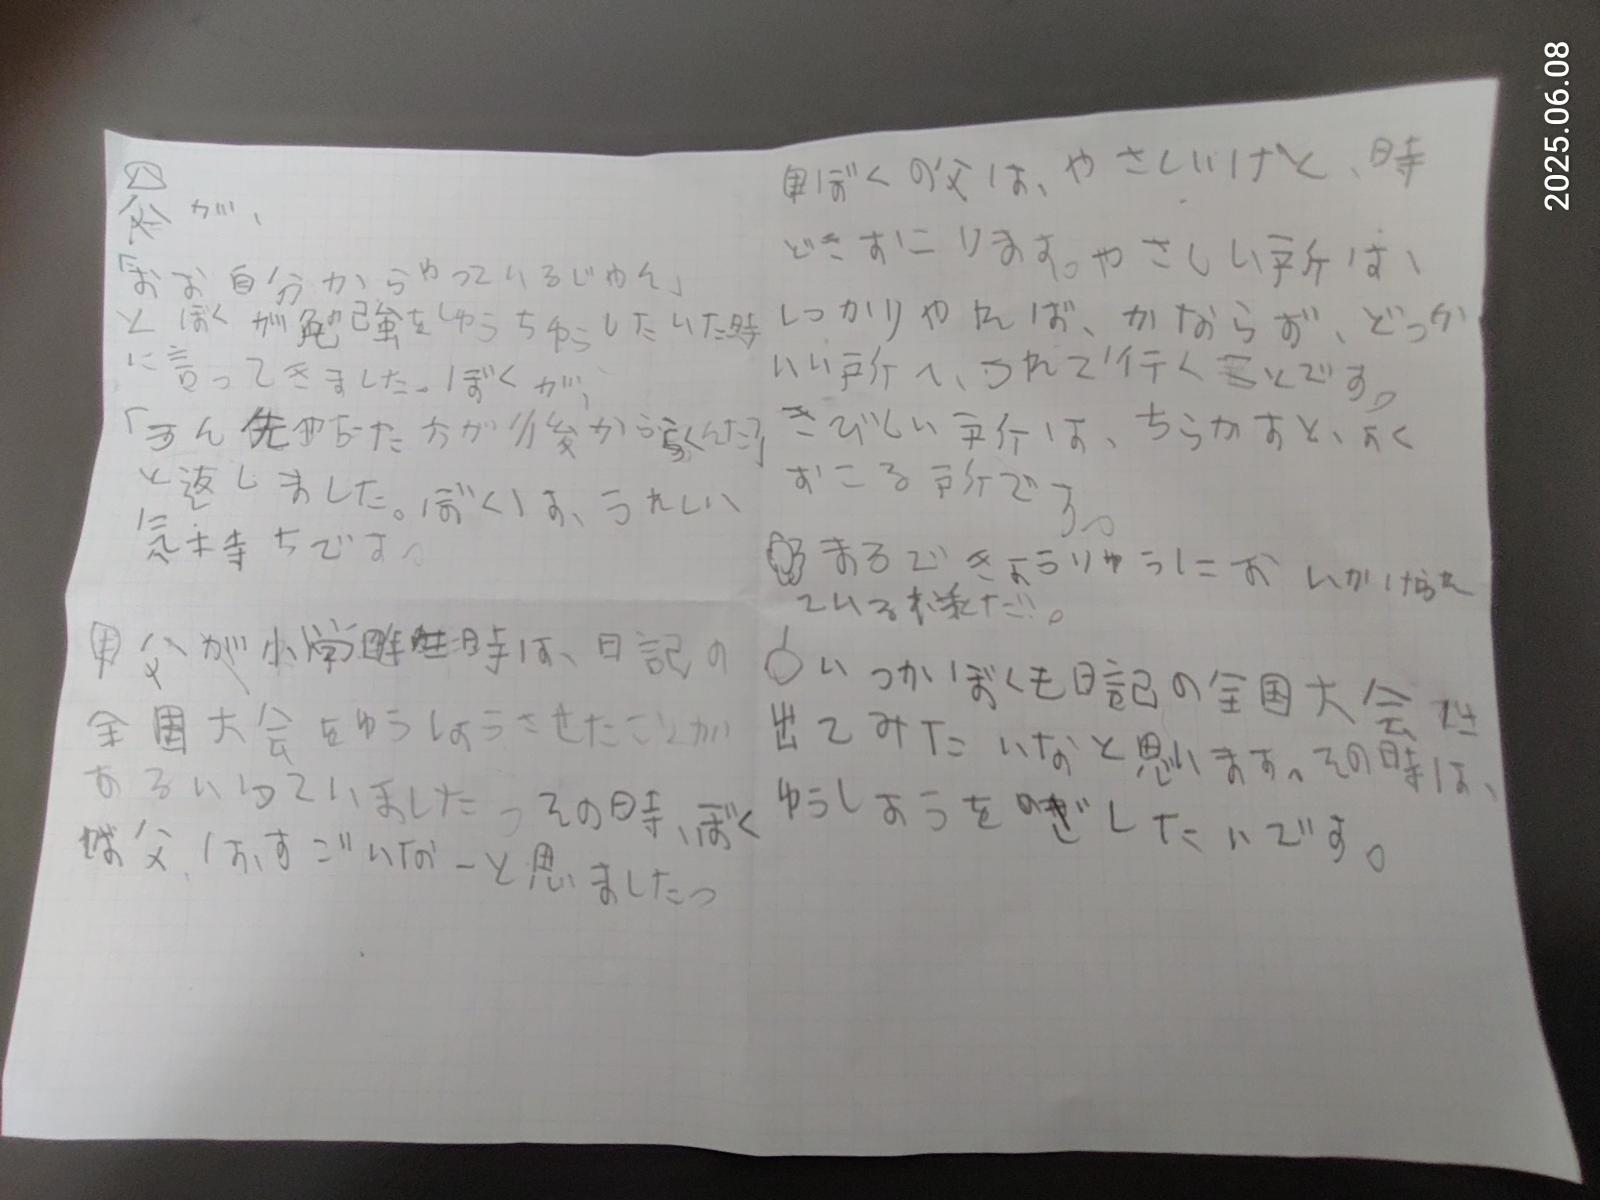 父が、
「おお自分からやっているじゃん」
とぼくが勉強をしゅうちゅうしたいた時
に言ってきました。ぼくが、
「うん先やった方が後から らくんだ」
と返しました。ぼくは、うれしい
気持ちです。
父が小学 生時は、日記の
全国大会をゆうしょうさせたことが
あるいっていました。その時、ぼく
父は、すごいなーと思いました。
ぼくの父は、やさしいけど、時
どきおこります。やさしい所は、
しっかりやれば、かならず、どっか
いい所へ、つれて行くことです。
きびしい所は、ちらかすと、よく
おこる所です。
まるできょうりゅうにおいかけられ
ている様だ。
いつかぼくも日記の全国大会に
出てみたいなと思います。その時は、
ゆうしょうをめざしたいです。
2025.06.08